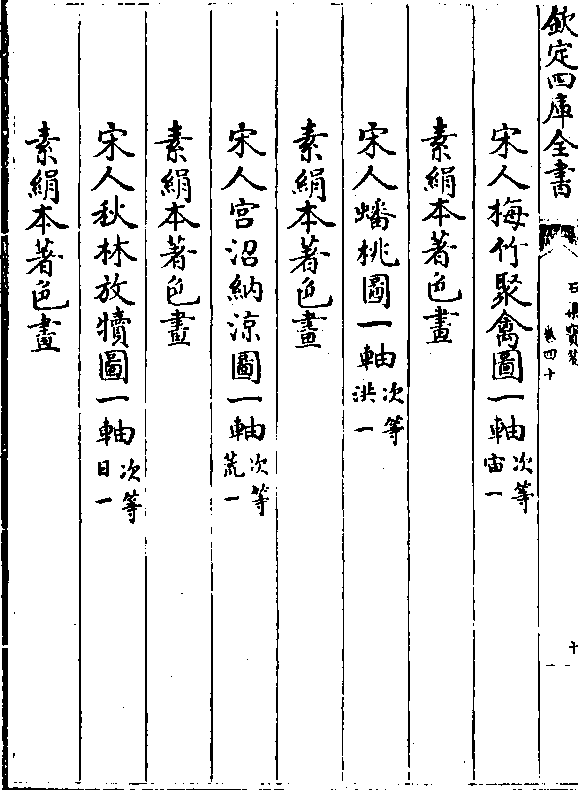 欽定四庫全書
石渠寶笈
卷四十
宋人梅竹聚禽圖一軸次等宙一
素絹本著色畫
宋人蟠桃圖一軸次等洪一
素絹本著色畫
宋人宮沼納涼圖一軸次等荒一
素絹本著色畫
宋人秋林放犢圖一軸次等日一
素絹本著色畫